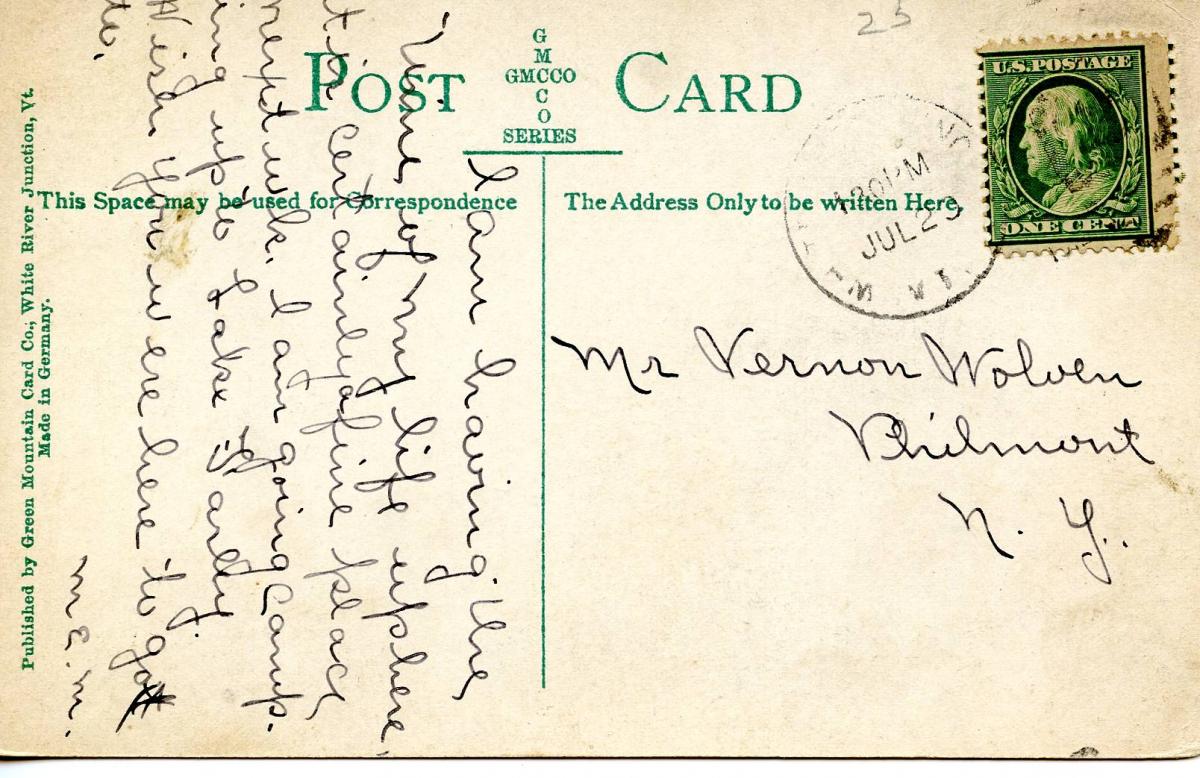 23
POST CARD
G
M
GMCCO
C
O
SERIES
This Space may be used for Correspondence
The Address Only to be written Here.
U.S. POSTAGE
ONE CENT
430 PM
JUL 23
Mr Vernon Wolven
Philmont
N. Y.
I am having the
time of my life up here,
it is certainly a fine place,
next wk. I am going Camp-
ing up to Lake
Wish you were here to go
to.
M. E. M.
Published by Green Mountain Card Co.; White River Junction, Vt.
Made in Germany.